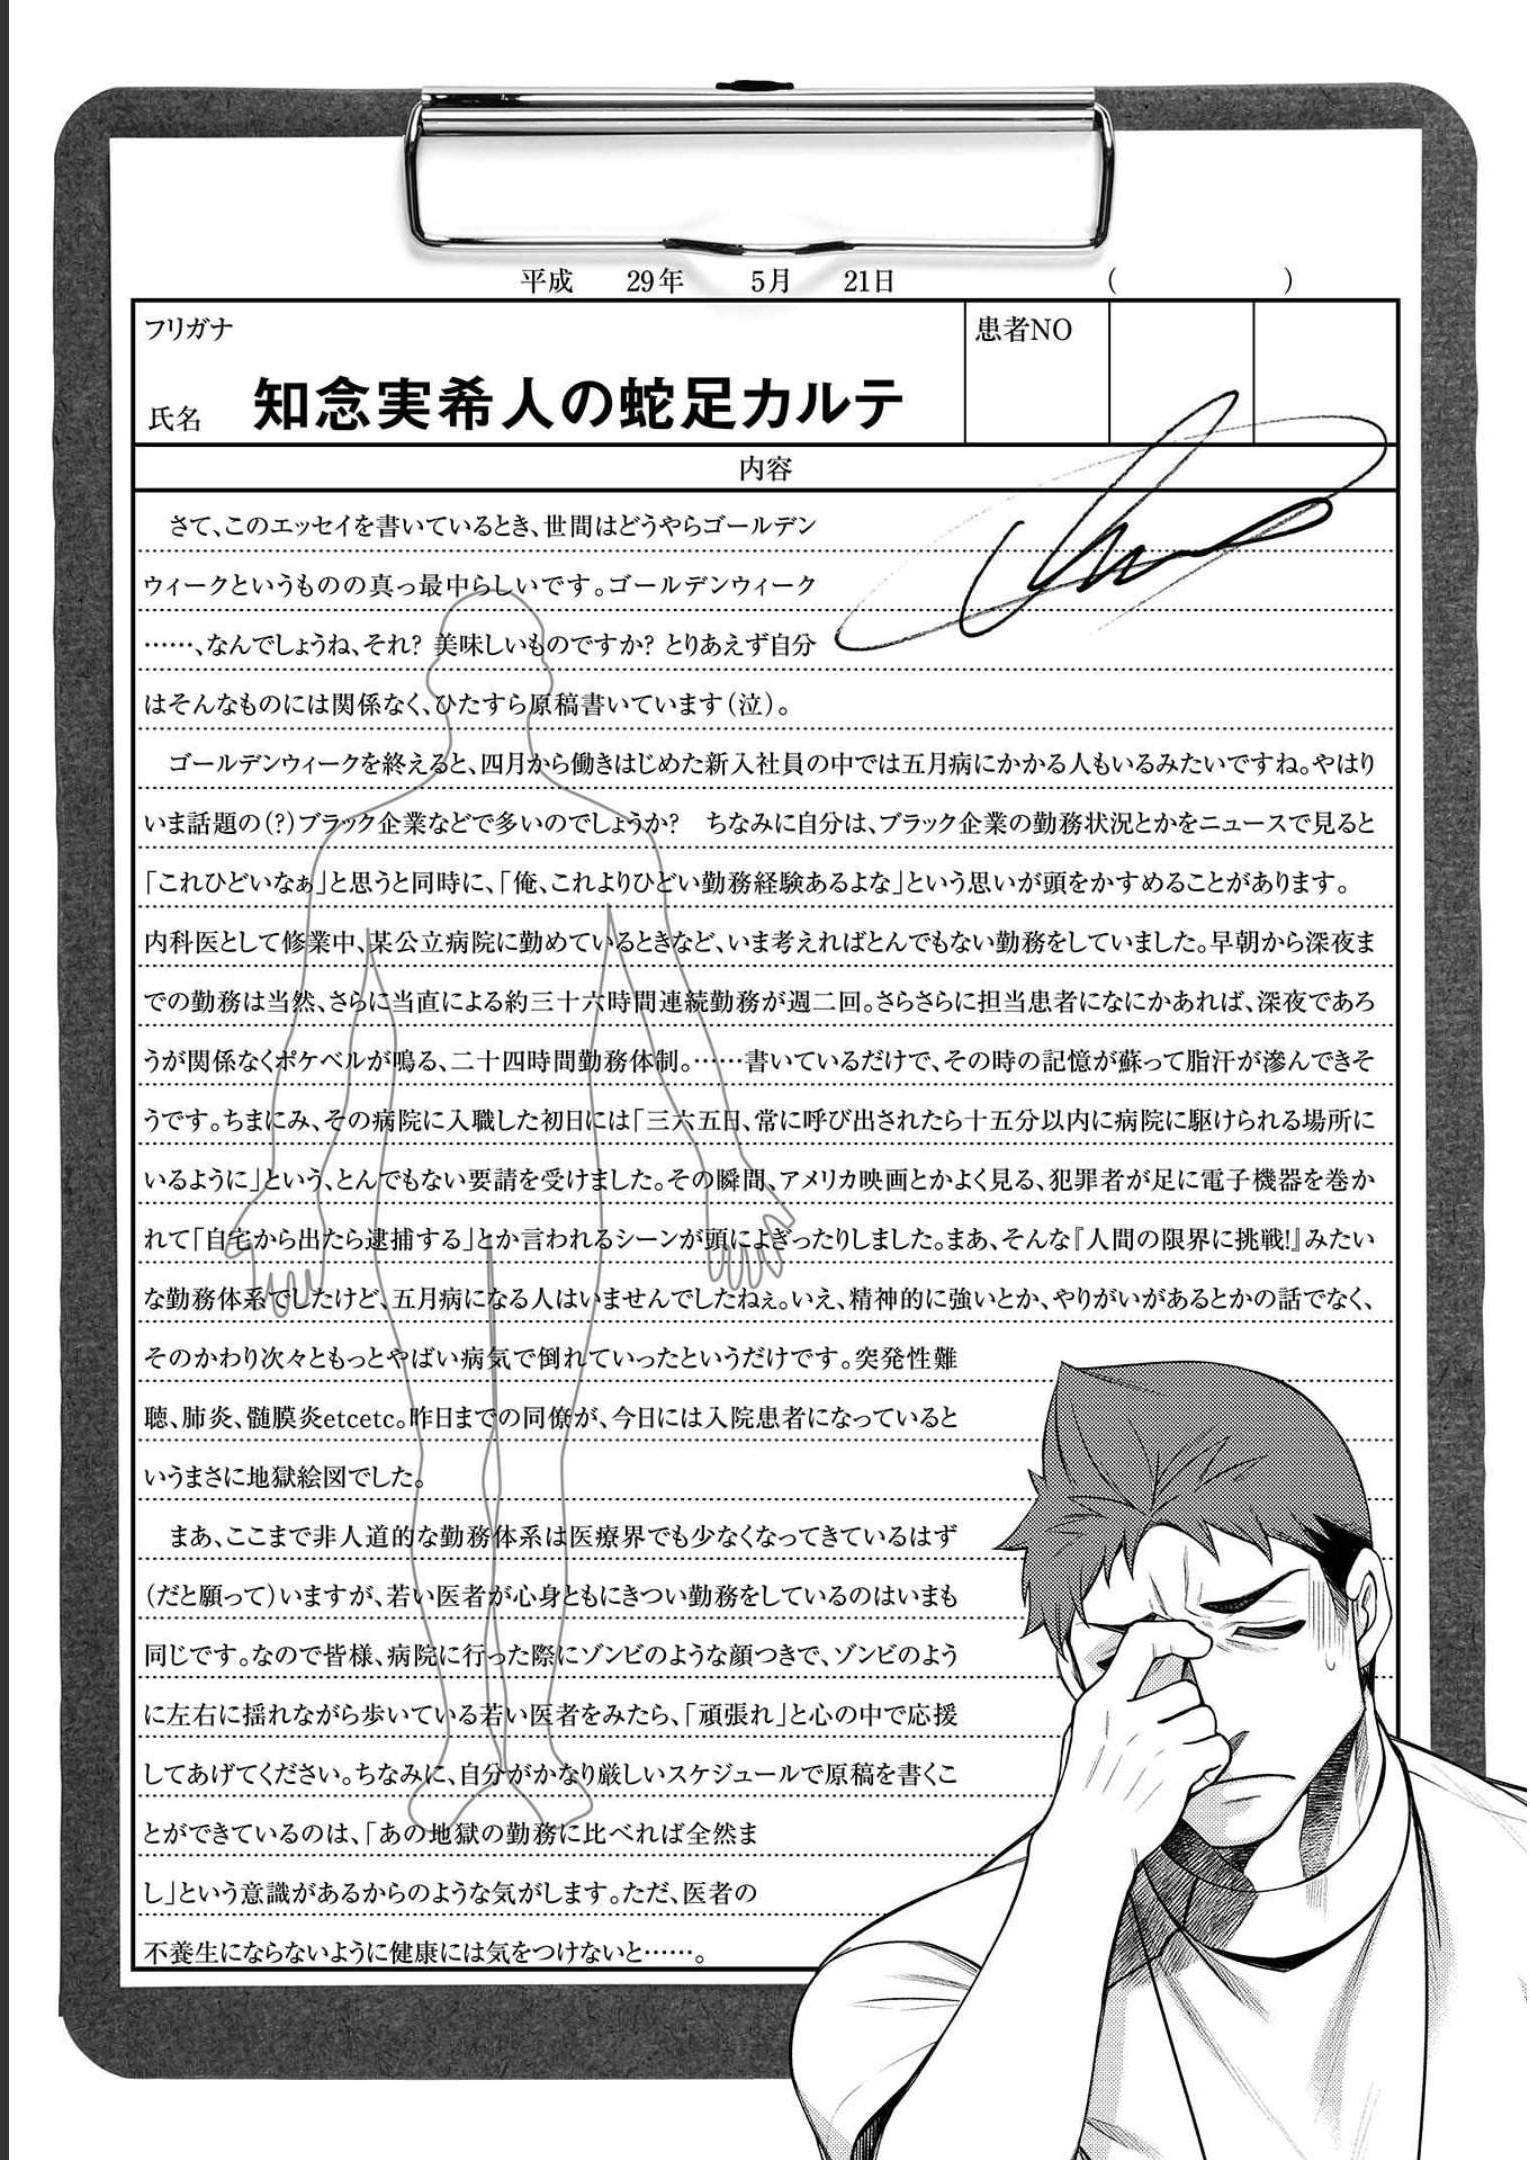 平成 29年 5月 21日 ( )
フリガナ
患者NO
氏名 知念実希人の蛇足カルテ
内容
さて、このエッセイを書いているとき、世間はどうやらゴールデン
ウィークというものの真っ最中らしいです。ゴールデンウィーク
……、なんでしょうね、それ? 美味しいものですか? とりあえず自分
はそんなものには関係なく、ひたすら原稿書いています(泣)。
ゴールデンウィークを終えると、四月から働きはじめた新入社員の中では五月病にかかる人もいるみたいですね。やはり
いま話題の(?)ブラック企業などで多いのでしょうか? ちなみに自分は、ブラック企業の勤務状況とかをニュースで見ると
「これひどいなぁ」と思うと同時に、「俺、これよりひどい勤務経験あるよな」という思いが頭をかすめることがあります。
内科医として修業中、某公立病院に勤めているときなど、いま考えればとんでもない勤務をしていました。早朝から深夜ま
での勤務は当然、さらに当直による約三十六時間連続勤務が週二回。さらさらに担当患者になにかあれば、深夜であろ
うが関係なくポケベルが鳴る、二十四時間勤務体制。……書いているだけで、その時の記憶が蘇って脂汗が滲んできそ
うです。ちまにみ、その病院に入職した初日には「三六五日、常に呼び出されたら十五分以内に病院に駆けられる場所に
いるように」という、とんでもない要請を受けました。その瞬間、アメリカ映画とかよく見る、犯罪者が足に電子機器を巻か
れて「自宅から出たら逮捕する」とか言われるシーンが頭によぎったりしました。まあ、そんな『人間の限界に挑戦!』みたい
な勤務体系でしたけど、五月病になる人はいませんでしたねぇ。いえ、精神的に強いとか、やりがいがあるとかの話でなく、
そのかわり次々ともっとやばい病気で倒れていったというだけです。突発性難
聴、肺炎、髄膜炎etcetc。昨日までの同僚が、今日には入院患者になっていると
いうまさに地獄絵図でした。
まあ、ここまで非人道的な勤務体系は医療界でも少なくなってきているはず
(だと願って)いますが、若い医者が心身ともにきつい勤務をしているのはいまも
同じです。なので皆様、病院に行った際にゾンビのような顔つきで、ゾンビのよう
に左右に揺れながら歩いている若い医者をみたら、「頑張れ」と心の中で応援
してあげてください。ちなみに、自分がかなり厳しいスケジュールで原稿を書くこ
とができているのは、「あの地獄の勤務に比べれば全然ま
し」という意識があるからのような気がします。ただ、医者の
不養生にならないように健康には気をつけないと……。